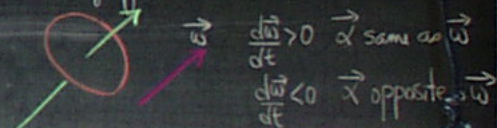 ω⃗
dω⃗/dt > 0 α⃗ same as ω⃗
dω⃗/dt < 0 α⃗ opposite ω⃗